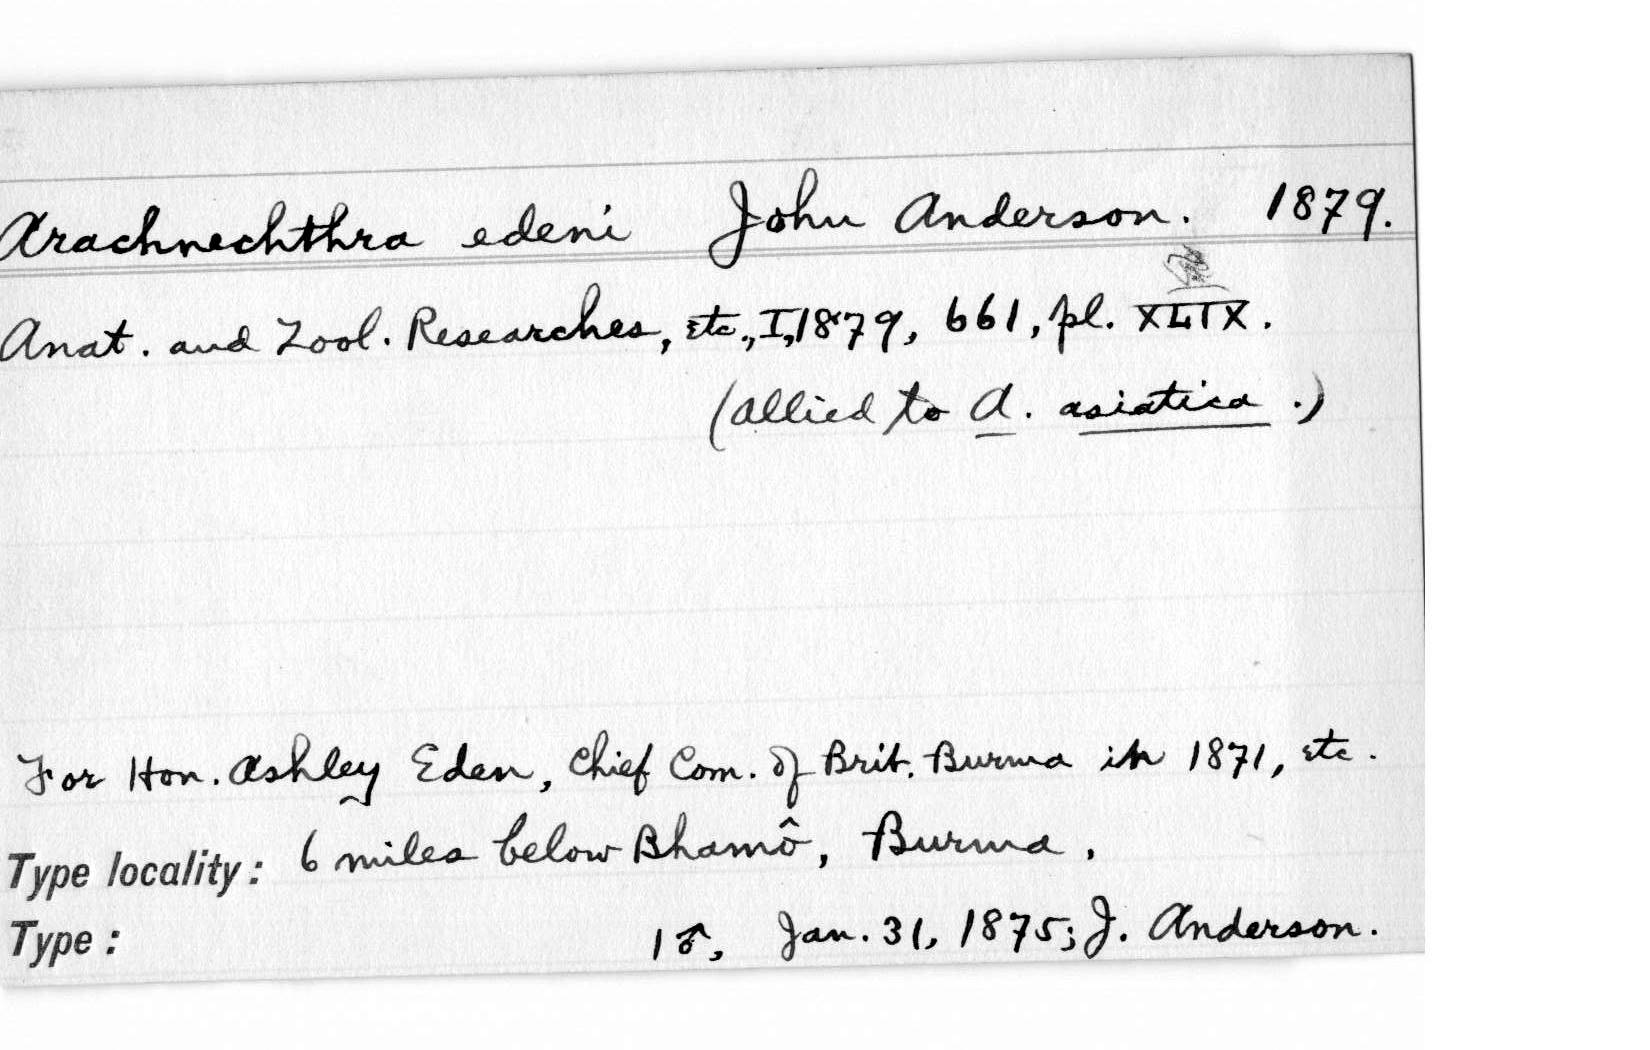 Arachnechthra edeni John Anderson. 1879.
Anat. and Zool. Researches, etc., I, 1879, 661, pl. XLIX.
(allied to A. asiatica.)
For Hon. Ashley Eden, Chief Com. of Brit. Burma in 1871, etc.
Type locality: 6 miles below Bhamô, Burma.
Type: 1♂, Jan. 31, 1875; J. Anderson.